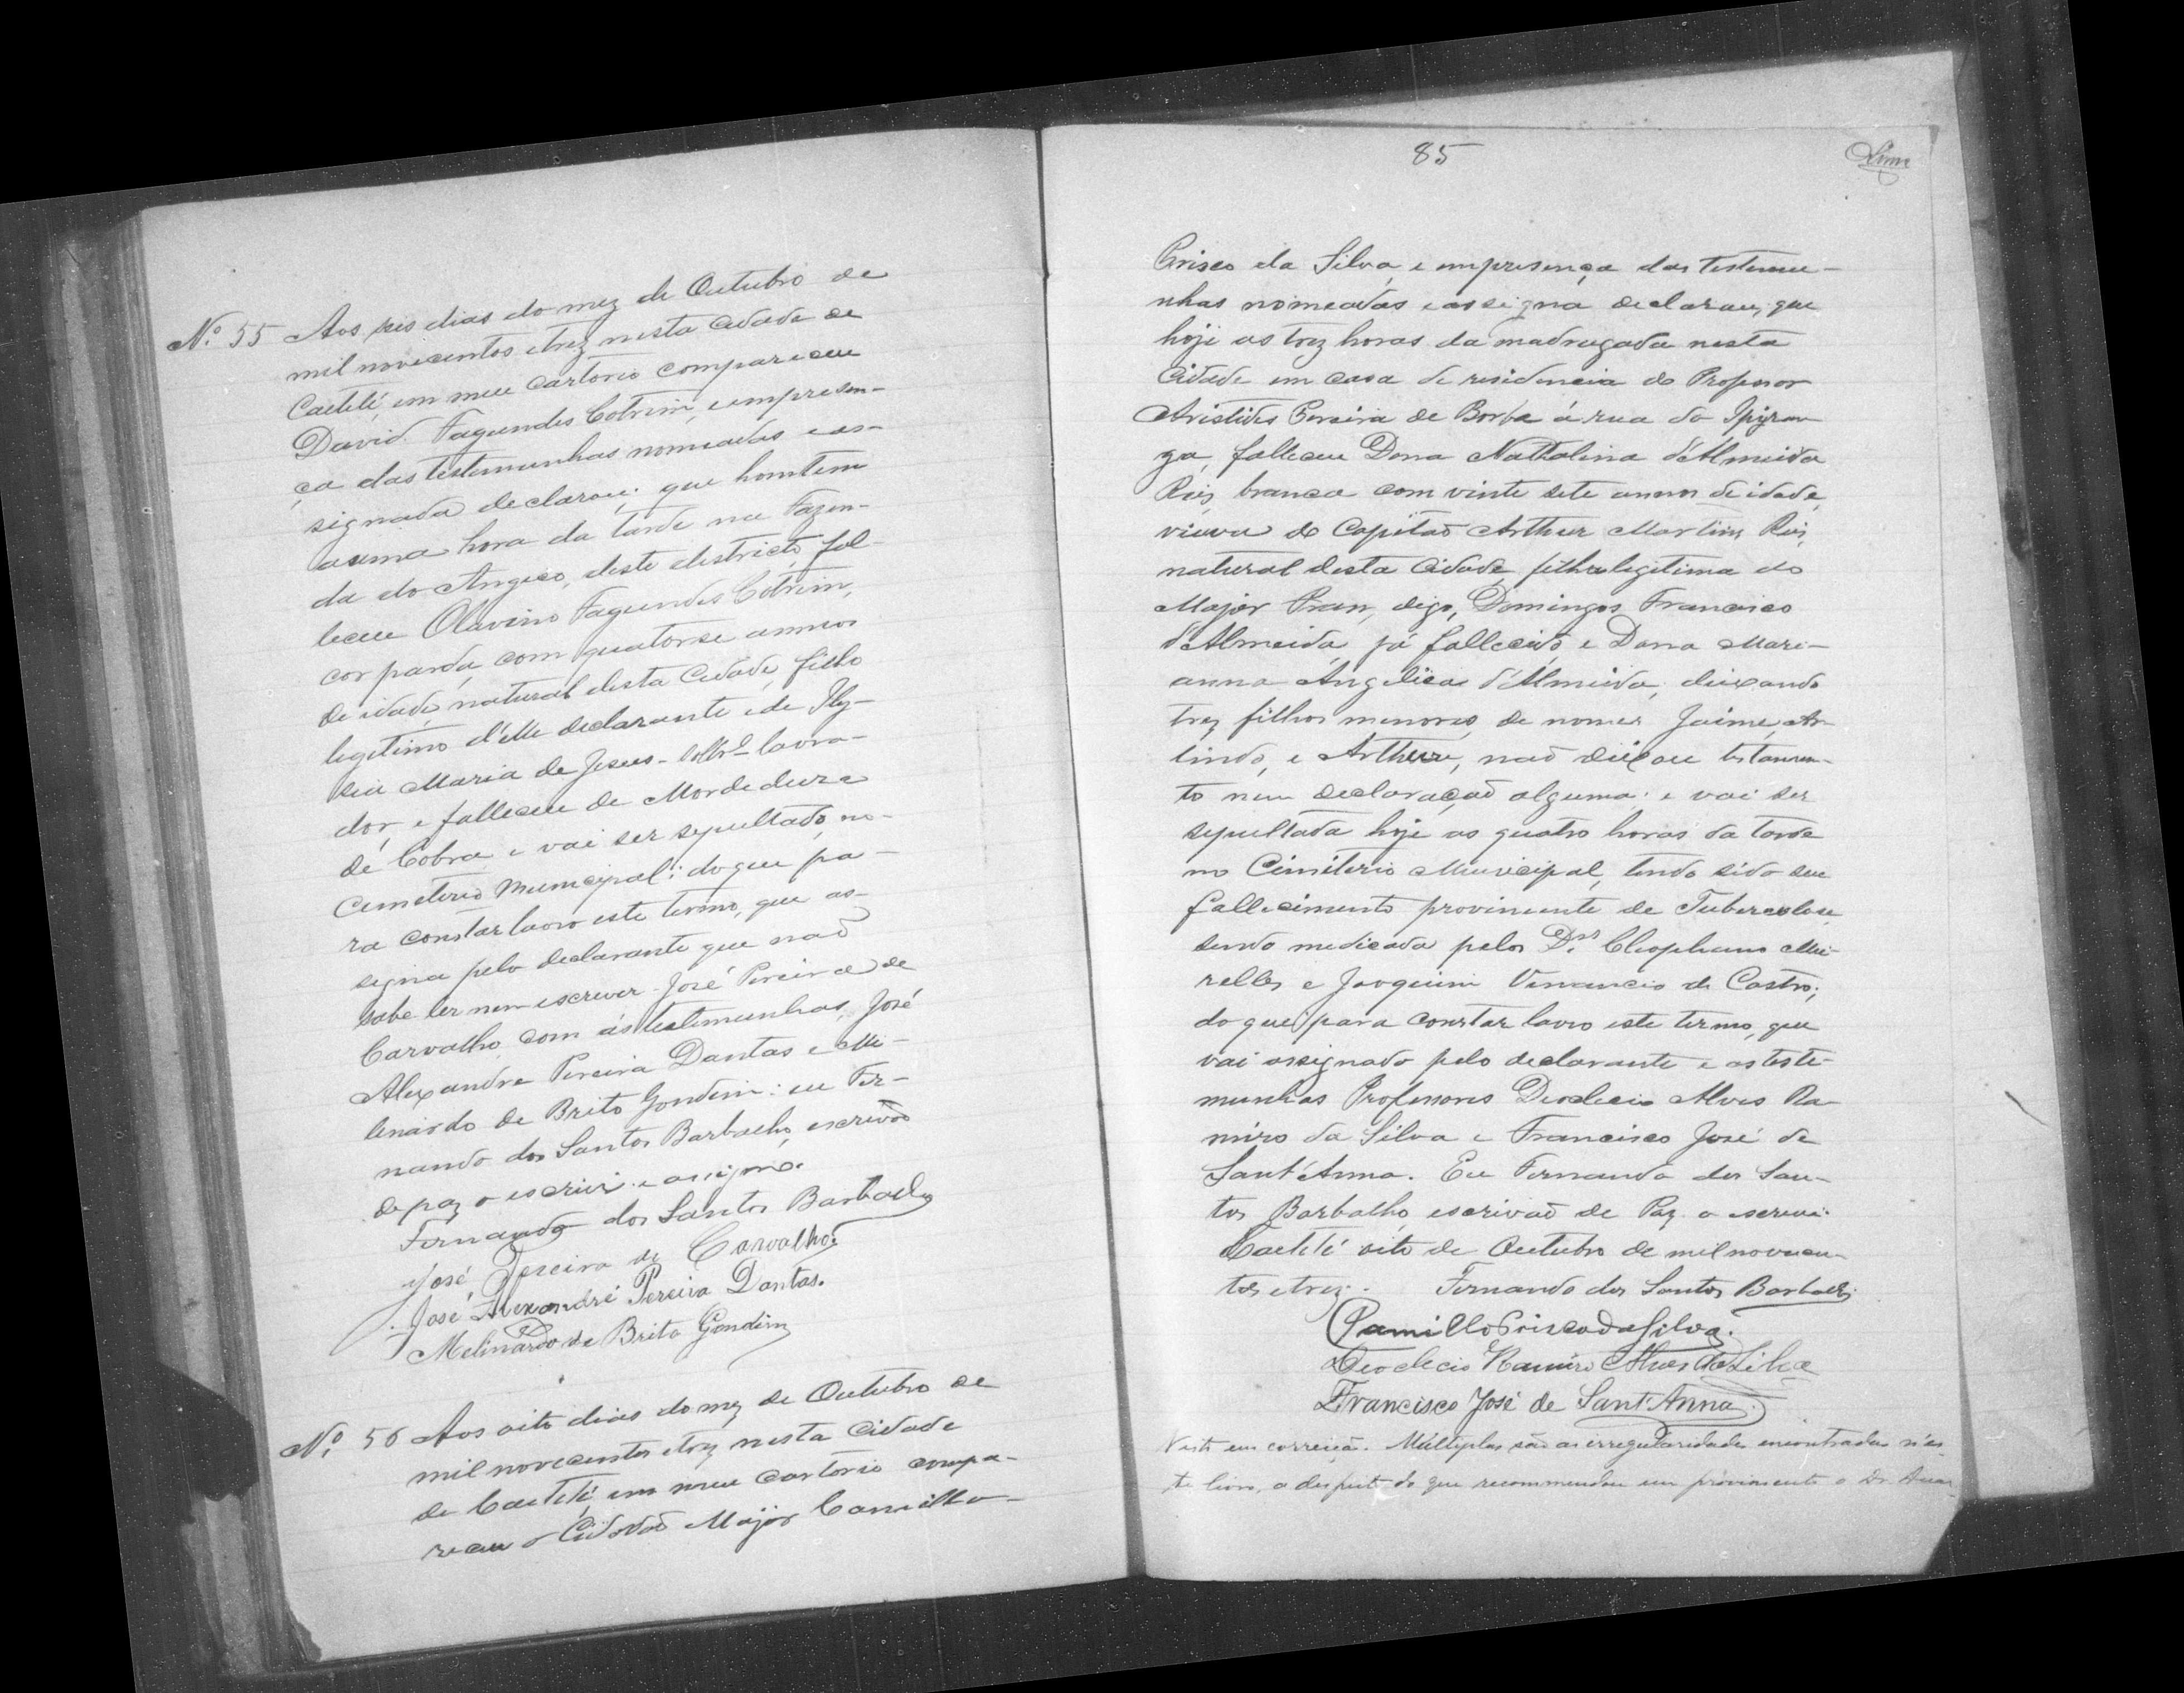 Nº 55 Aos seis dias do mez de Outubro de
mil novecentos e trez nesta cidade de
Caeteté, em meu cartorio compareceu
David Fagundes Cotrim, e em presen-
ça das testemunhas nomeadas e as-
signada declarou: que hontem
a uma hora da tarde na Fazen-
da do Angico, deste districto, fal-
leceu Olavino Fagundes Cotrim,
cor parda, com quatorse annos
de idade, natural desta Cidade, filho
legitimo d'elle declarante e de
Maria de Jesus - lavra-
dor e falleceu de Mordedura
de Cobra e vai ser sepultado no
Cemeterio Municipal: do que pa-
ra constar lavro este termo, que as-
signa pelo declarante que naõ
sabe ler nem escrever José Pereira de
Carvalho com ás testemunhas, José
Alexandre Pereira Dantas e Me-
linardo de Brito Gondim: eu Fer-
nando dos Santos Barbalho, escrivaõ
de paz o escrivi e assigno.
Fernando dos Santos Barbalho
José Pereira de Carvalho.
José Alexandré Pereira Dantas.
Melinardo de Brito Gondim
Nº 56 Aos oito dias do mez de Outubro de
mil novecentos e trez nesta Cidade
de Caeteté, em meu cartorio compa-
receu o Cidadaõ Major Camillo
85
Prisco da Silva, e em presença das testemu-
nhas nomeadas e assigna declarou, que
hoje as trez horas da madrugada nesta
Cidade em casa de residencia do Professor
Aristides Pereira de Borba á rua do Ipiran
ga, falleceu Dona Nathalina d'Almeida
Reis, branca com vinte sete annos de idade,
viuva do Capitaõ Arthur Martins Reis,
natural desta Cidade, filha legitima do
Major Fran, digo, Domingos Francisco
d'Almeida, já fallecido, e Dona Mari-
anna Angelica d'Almeida, deixando
trez filhos menores, de nomes Jaime, Ar-
lindo, e Arthur, naõ deixou testamen-
to nem declaraçaõ alguma: e vai ser
sepultada hoje as quatro horas da tarde
no Cimiterio Municipal, tendo sido seu
fallecimento proviniente de Tuberculose
sendo medicada pelos Drs. Cleophano Mei-
relles e Joaquim Venancio de Castro;
do que para constar lavro este termo, que
vai assignado pelo declarante e as teste-
munhas Professores Deoclecio Alves Ra-
miro da Silva e Francisco José de
Sant'Anna. Eu Fernando dos San-
tos Barbalho, escrivaõ de Paz o escrevi.
Caeteté oito de Outubro de mil novecen-
tos e trez. Fernando dos Santos Barbalho
Camillo Prisco da Silva.
Deoclecio Ramiro Alves da Silva
Francisco José de Sant'Anna.
Visto em correição. Múltiplas são as irregularidades encontradas n'es-
te livro, a despeito do que recommendou em provimento o Dr.